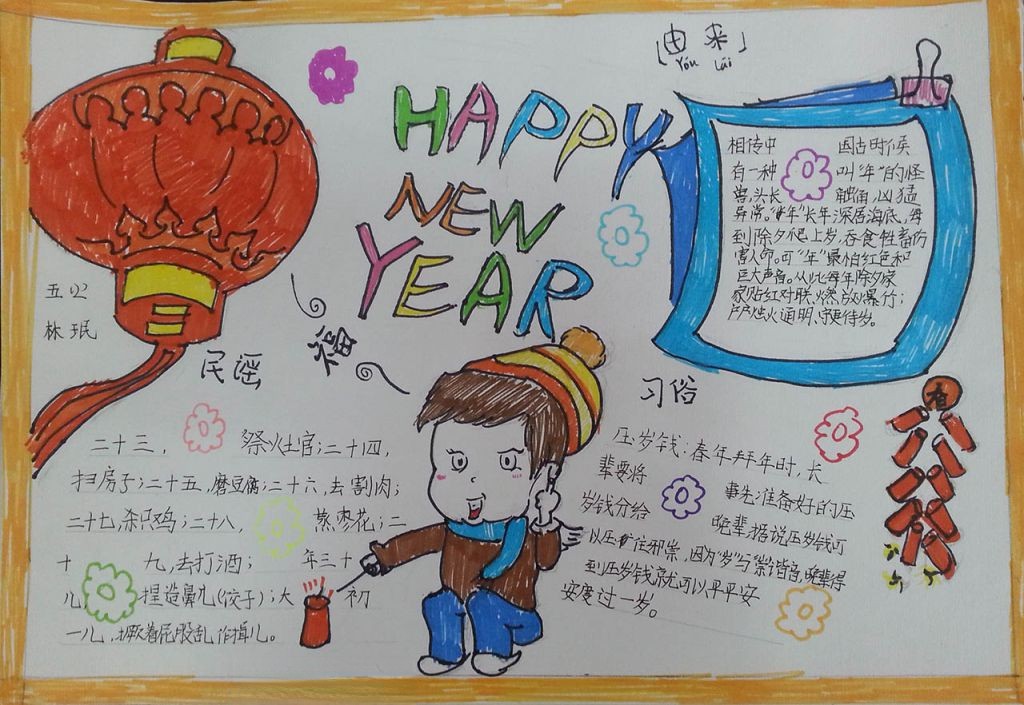 「由来」
Yóu Lái
HAPPY
NEW
YEAR
相传中国古时候
有一种叫"年"的怪
兽,头长触角,凶猛
异常。"年"长年深居海底,每
到除夕爬上岁,吞食牲畜伤
害人命。可"年"最怕红色和
巨大声音。从此每年除夕家
家贴红对联、燃放爆竹;
户户烛火通明、守更待岁。
五
林珉
福
民谣
二十三,祭灶官;二十四,
扫房子;二十五,磨豆腐;二十六,去割肉;
二十七,杀只鸡;二十八,蒸枣花;二
十九,去打酒;年三十
儿,捏造鼻九(饺子);大初
一儿,撅着屁股乱作揖儿。
习俗
压岁钱:春年拜年时,长
辈要将事先准备好的压
岁钱分给晚辈,据说压岁钱可
以压住邪祟,因为"岁"与"祟"谐音,晚辈得
到压岁钱就可以平平安
安度过一岁。
春